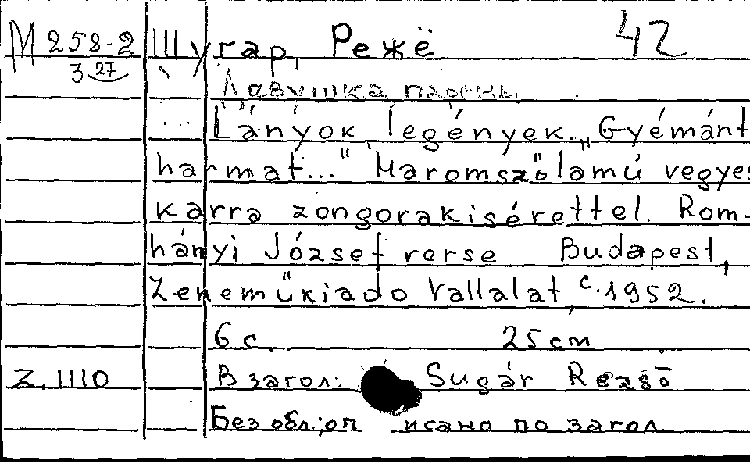 М 258-2 Шугар, Режё 42
3 27
Lányok, legények. „Gyémánt
harmat..." Háromszólamú vegyes
karra zongorakisérettel. Rom-
hányi József verse Budapest,
Zeneműkiado Vallalat, c.1952.
6 с. 25 см
Z. 1110 В загол: Sugár Rezsö
Без обл; оп исано по загол